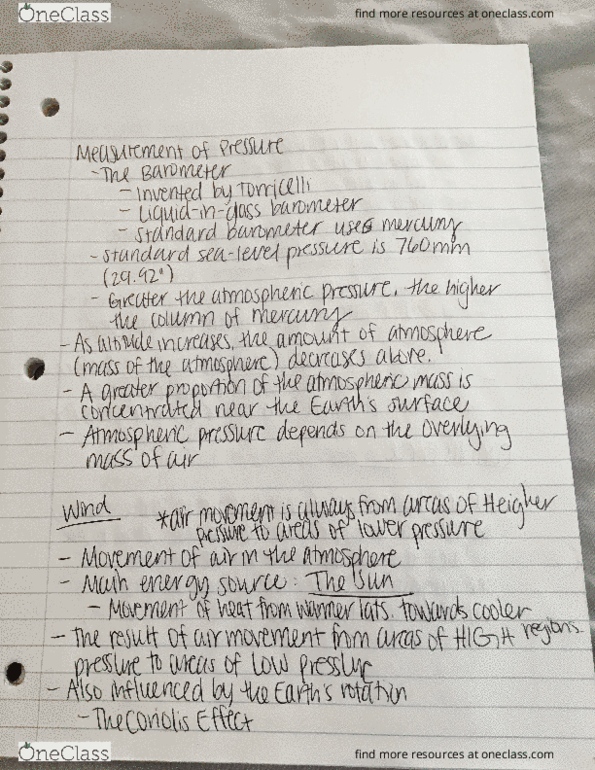 OneClass
find more resources at oneclass.com
Measurement of Pressure
- The Barometer
- invented by Torricelli
- Liquid-in-glass barometer
- standard barometer uses mercury
- standard sea-level pressure is 760mm
(29.92")
- Greater the atmospheric pressure, the higher
the column of mercury
- As altitude increases, the amount of atmosphere
(mass of the atmosphere) decreases above.
- A greater proportion of the atmospheric mass is
concentrated near the Earth's surface
- Atmospheric pressure depends on the overlying
mass of air
Wind
*air movement is always from areas of Heigher
pressure to areas of lower pressure
- Movement of air in the Atmosphere
- Main energy source: The Sun
- Movement of heat from warmer lats. towards cooler
regions.
- The result of air movement from areas of HIGH
pressure to areas of low pressure
- Also influenced by the Earth's rotation
- The Coriolis Effect
OneClass
find more resources at oneclass.com